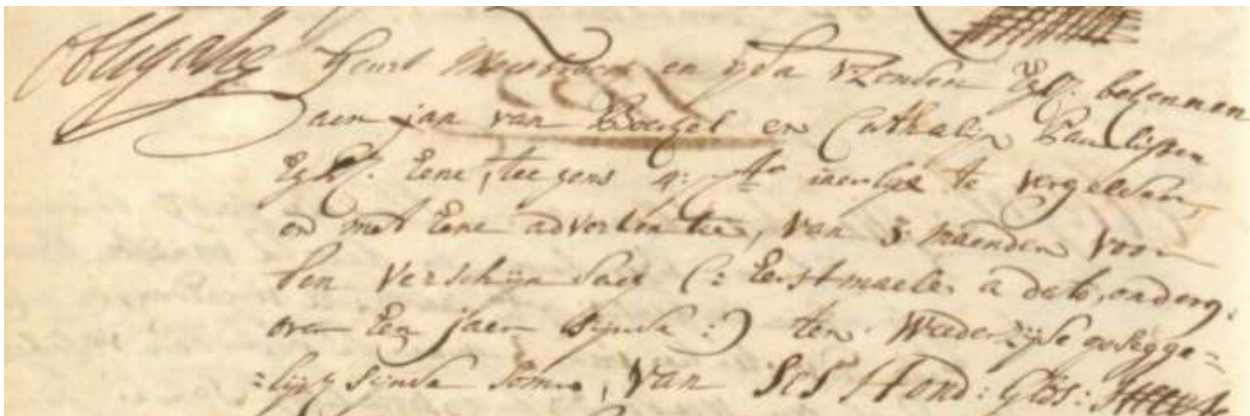 obligatie Geurt en ijda van Zenden Eghl. bekennen
aen jan van Boetzel en Cathalijn Paulissen
Eghl. Eene, tee gens 4: p.Cto iaerlijx te vergelden,
en met Eene advertentie, van 3: maenden voor
den verschijn dach (: Eerstmaels a dato, onderg.
over Een jaer sijnde :) ten weederzijde opsegge=
=lijx sijnde somme, van Ses Hond: Glds: